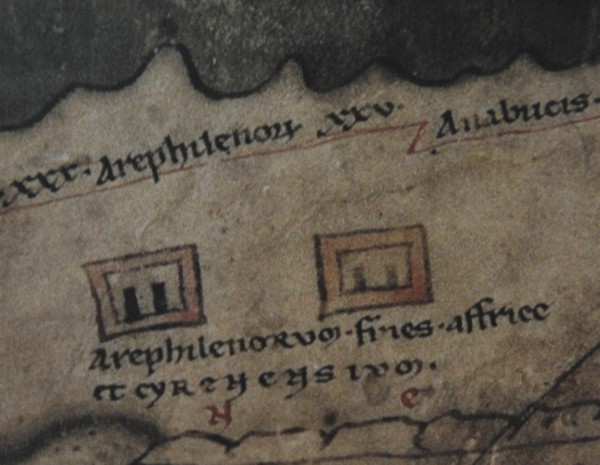 xxx. Arephilenorum xxv. Anabucis.
Arephilenorum. fines. affrice
et cyrenensium.
N e